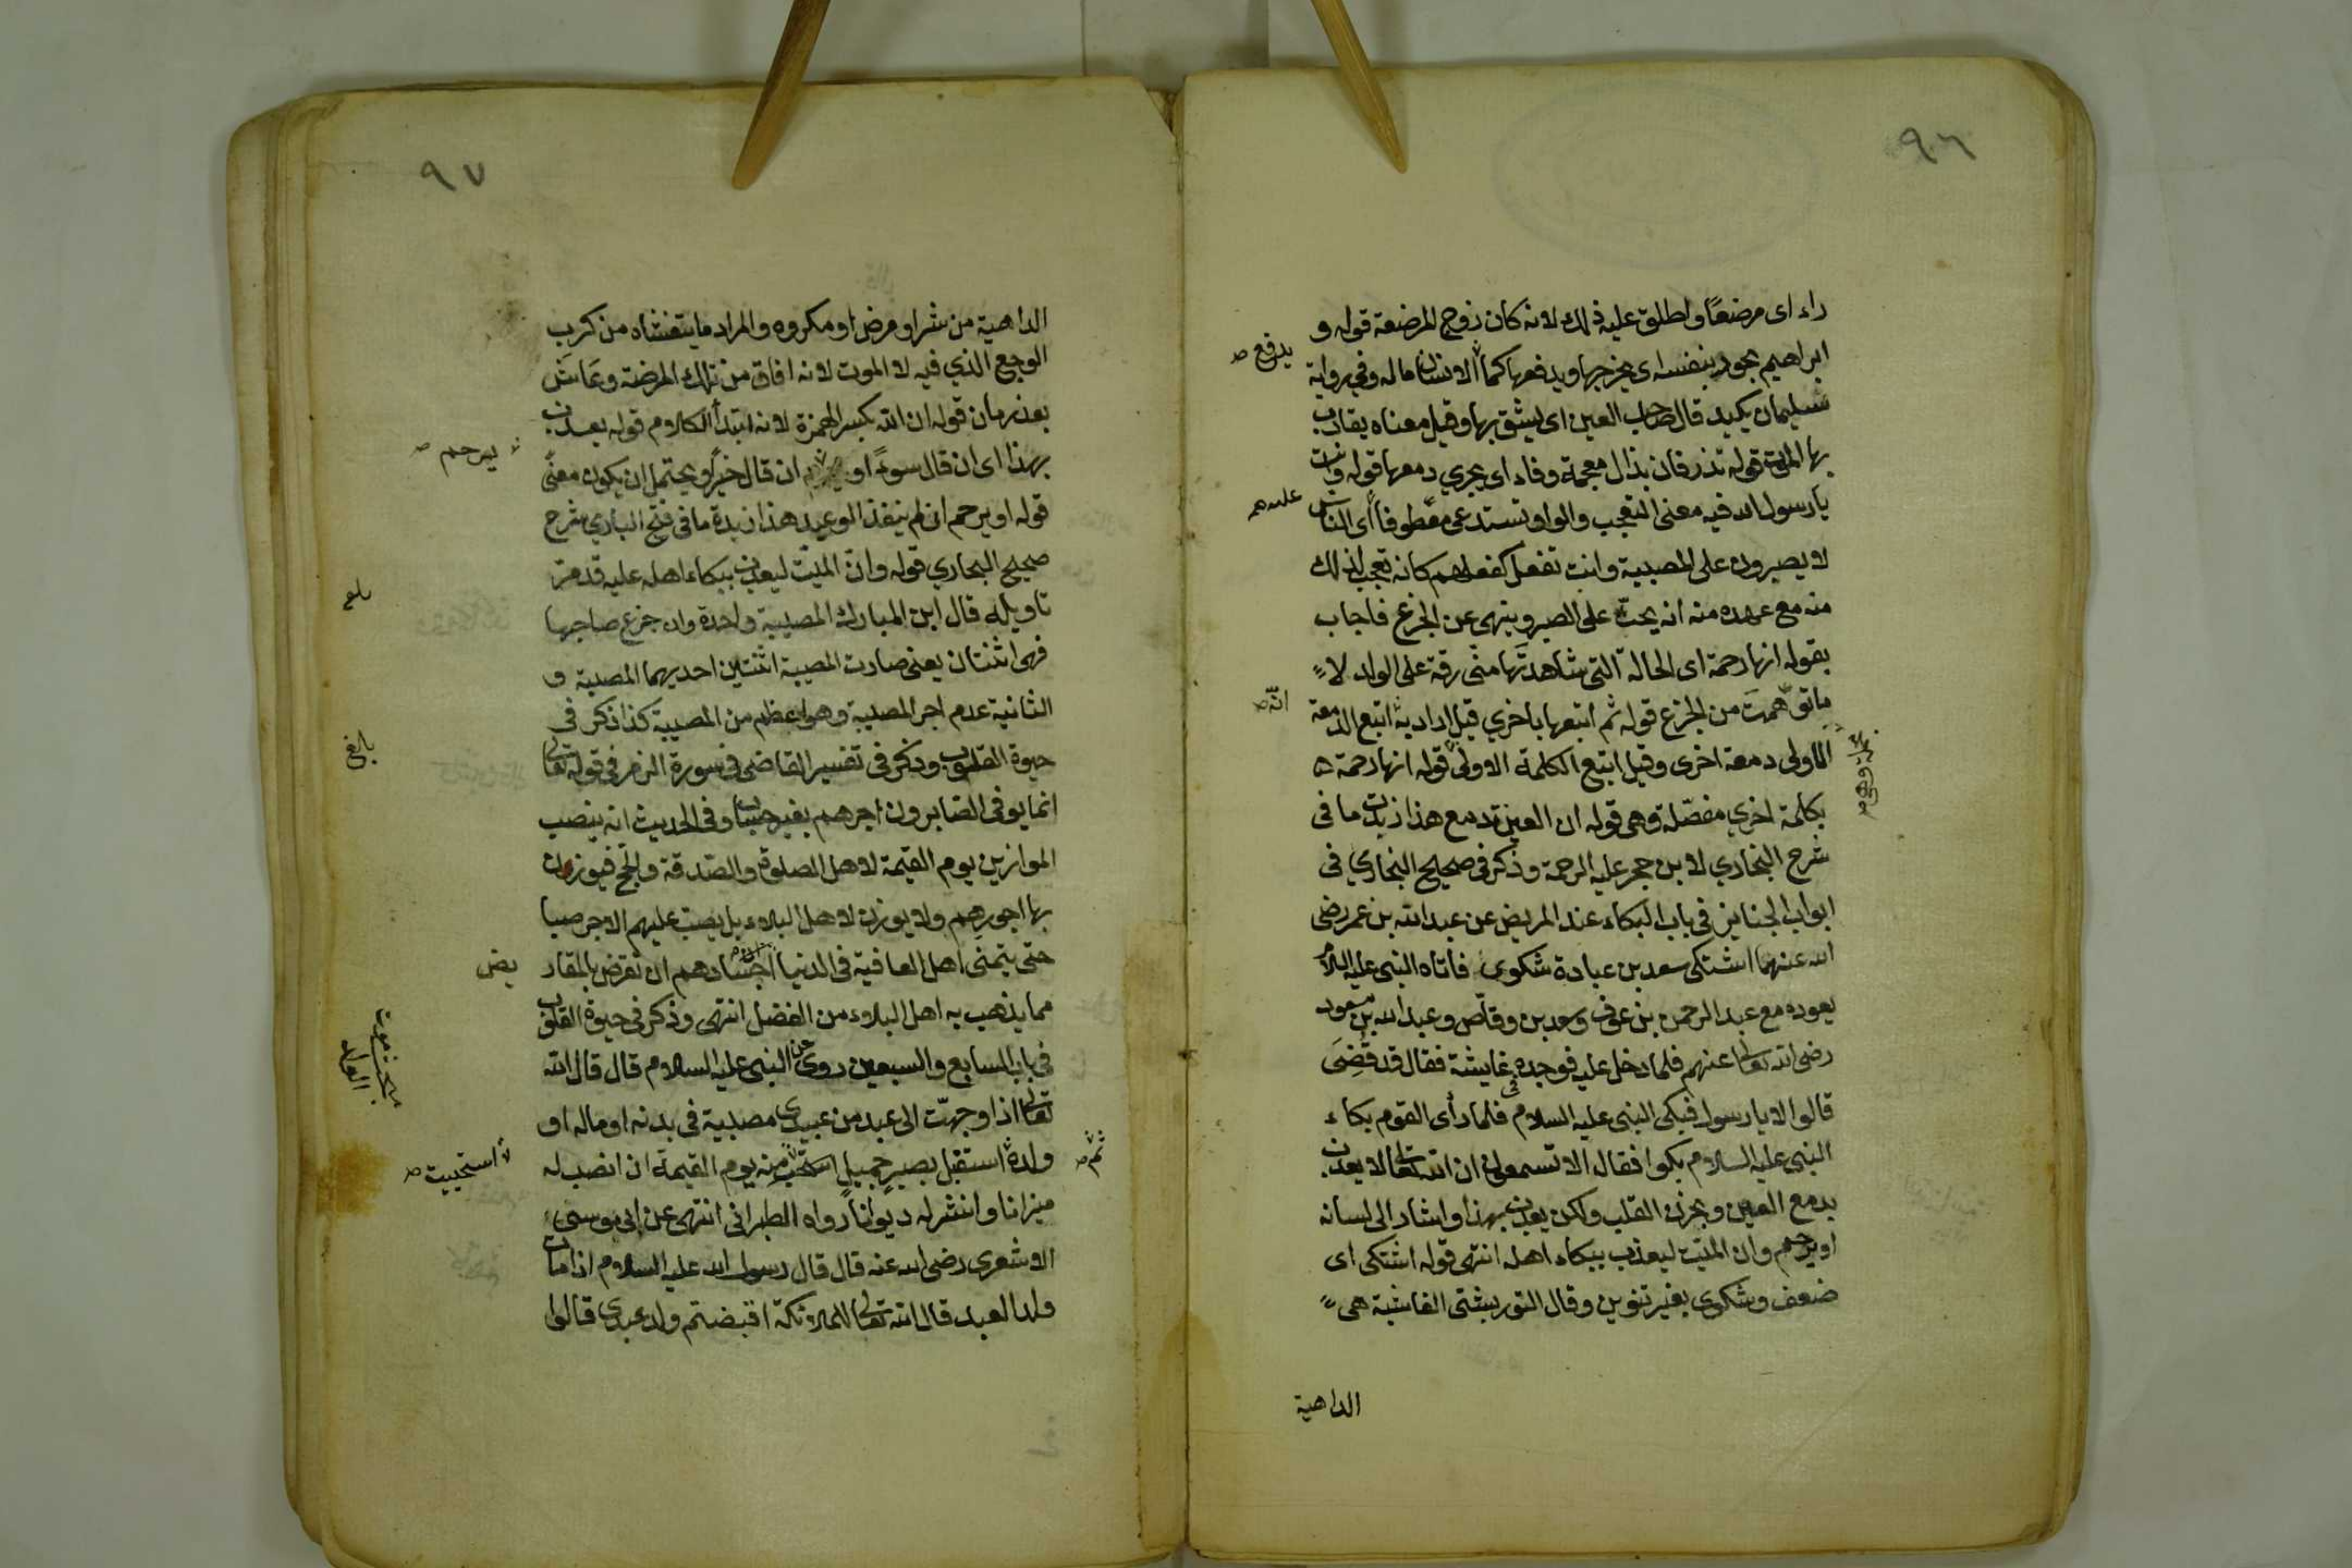 ٩٦
راء اى مرضعًا واطلق عليه ذلك لانه كان زوج المرضعة قوله و
ابراهيم يجود بنفسه اى يخرجها ويدفعها كما الانسان ماله وفي رواية
يدفع صح
سليمان يكيد قال صاحب العين اى يسوق بها وقيل معناه يقارب
بها الموت قوله تذرفان بذال معجمة وفاء اى يجري دمعها قوله وانت
يا رسول الله فيه معنى التعجب والواو تستدعى معطوفا اى الناس
لا يصبرون على المصيبة وانت تفعل كفعلهم كانه تعجب لذلك
منه مع عهده منه انه يحث على الصبر وينهى عن الجزع فاجاب
بقوله انها رحمة اى الحالة التى شاهدتها منى رقة على الولد لا
ما توهمت من الجزع قوله ثم اتبعها باخري قيل اراد به اتبع الدمعة
انه صح
الاولى دمعة اخرى وقيل اتبع الكلمة الاولى قوله انها رحمة
بكلمة اخري مفصّلة وهى قوله ان العين تدمع هذا زبدة ما فى
شرح البخاري لابن حجر عليه الرحمة وذكر فى صحيح البخاري فى
ابواب الجنايز فى باب البكاء عند المريض عن عبد الله بن عمر رضى
الله عنهما اشتكى سعد بن عبادة شكوى فاتاه النبى عليه السلام
يعوده مع عبد الرحمن بن عوف وسعد بن وقاص وعبد الله بن مسعود
رضى الله تعالى عنهم فلما دخل عليه فوجده فى غايشة فقال قد قضى
قالوا لا يا رسول فبكى النبى عليه السلام فلما رأى القوم بكاء
النبى عليه السلام بكوا فقال الا تسمعون ان الله تعالى لا يعذب
بدمع العين وبحزن القلب ولكن يعذب بهذا واشار الى لسانه
او يرحم وان الميّت ليعذب ببكاء اهله انتهى قوله اشتكى اى
ضعف وشكوى بغير تنوين وقال التوربشتى الغاشية هى
الداهية
٩٧
الداهية من شر او مرض او مكروه والمراد ما يتغشاه من كرب
الوجع الذي فيه لا الموت لانه افاق من تلك المرضة وعاش
بعد زمان قوله ان الله بكسر الهمزة لانه ابتدأ الكلام قوله يعذب
بهذا اى ان قال سوءً او ان قال خيرًا ويحتمل ان يكون معنى
يرحم صح
قوله او يرحم ان لم ينفذ الوعيد هذا زبدة ما فى فتح الباري شرح
صحيح البخاري قوله وان الميّت ليعذب ببكاء اهله عليه قد مرّ
تاويله قال ابن المبارك المصيبة واحدة وان جزع صاحبها
فهى اثنتان يعنى صارت المصيبة اثنتين احديهما المصيبة و
الثانية عدم اجر المصيبة وهو اعظم من المصيبة كذا ذكر فى
حيوة القلوب وذكر فى تفسير القاضى فى سورة الزمر فى قوله تعالى
انما يوفى الصابرون اجرهم بغير حساب وفى الحديث انه ينصب
الموازين يوم القيمة لاهل الصلوة والصدقة والحج فيوزن
بها اجورهم ولا يوزن لاهل البلاء بل يصب عليهم الاجر صبا
حتى يتمنى اهل العافية فى الدنيا اجسادهم ان تقرض بالمقار
يض
مما يذهب به اهل البلاء من الفضل انتهى وذكر فى حيوة القلوب
فى باب السابع والسبعين روى عن النبى عليه السلام قال قال الله
تعالى اذا وجهت الى عبد من عبيدى مصيبة فى بدنه او ماله او
ولده استقبل بصبر جميل منه يوم القيمة ان انصب له
ثم صح
استحييت صح
ميزانا وانشر له ديوانا رواه الطبرانى انتهى عن ابى موسى
الاشعرى رضى الله عنه قال قال رسول الله عليه السلام اذا مات
ولد العبد قال الله تعالى لملائكة اقبضتم ولد عبدى قالوا